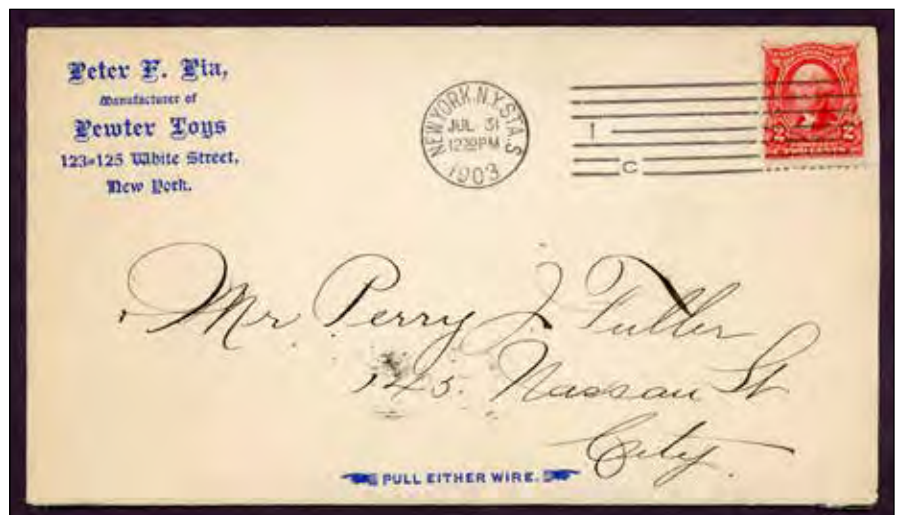 Peter F. Pia,
Manufacturer of
Pewter Toys
123=125 White Street,
New York.
NEW YORK. N.Y. STA. S
JUL 31
1230PM
1903
1
C
2 2
Mr Perry J. Fuller
145. Nassau St
City.
PULL EITHER WIRE.